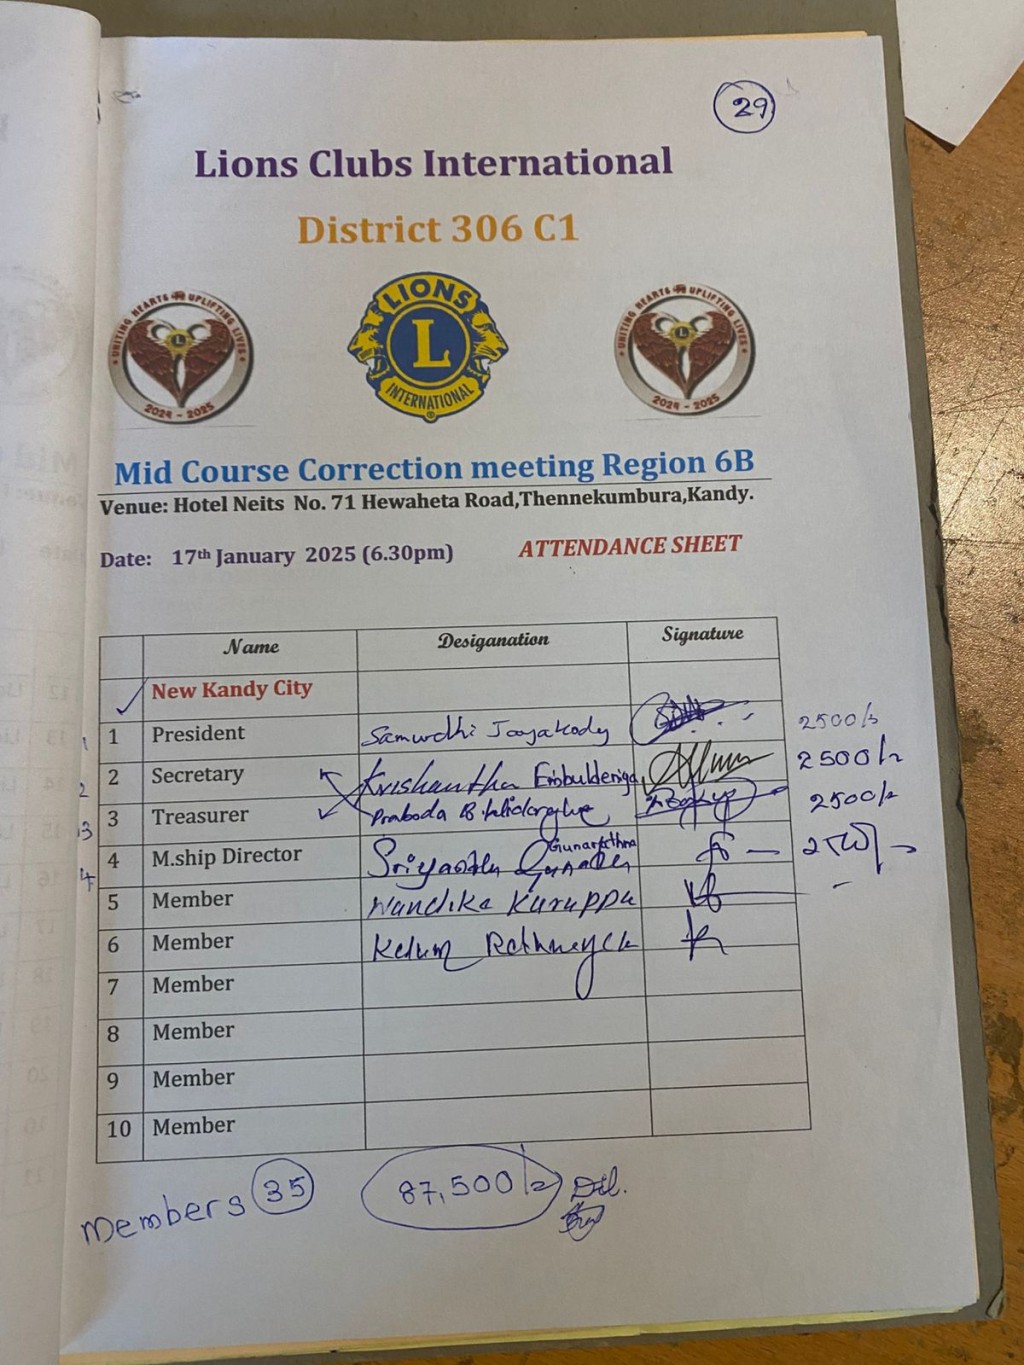 29
Lions Clubs International
District 306 C1
UNITING HEARTS UPLIFTING LIVES
2024 - 2025
LIONS
L
INTERNATIONAL
UNITING HEARTS UPLIFTING LIVES
2024 - 2025
Mid Course Correction meeting Region 6B
Venue: Hotel Neits No. 71 Hewaheta Road,Thennekumbura,Kandy.
Date: 17th January 2025 (6.30pm) ATTENDANCE SHEET
Name Desiganation Signature
New Kandy City
1 1 President Samurdhi Jayakody 2500/=
2 2 Secretary Krishantha Embuldeniya 2500/=
3 3 Treasurer Praboda 2500/=
4 4 M.ship Director Gunarathna
5 Member Nandika Kuruppu -
6 Member Kelum
7 Member
8 Member
9 Member
10 Member
Members 35 87,500/=